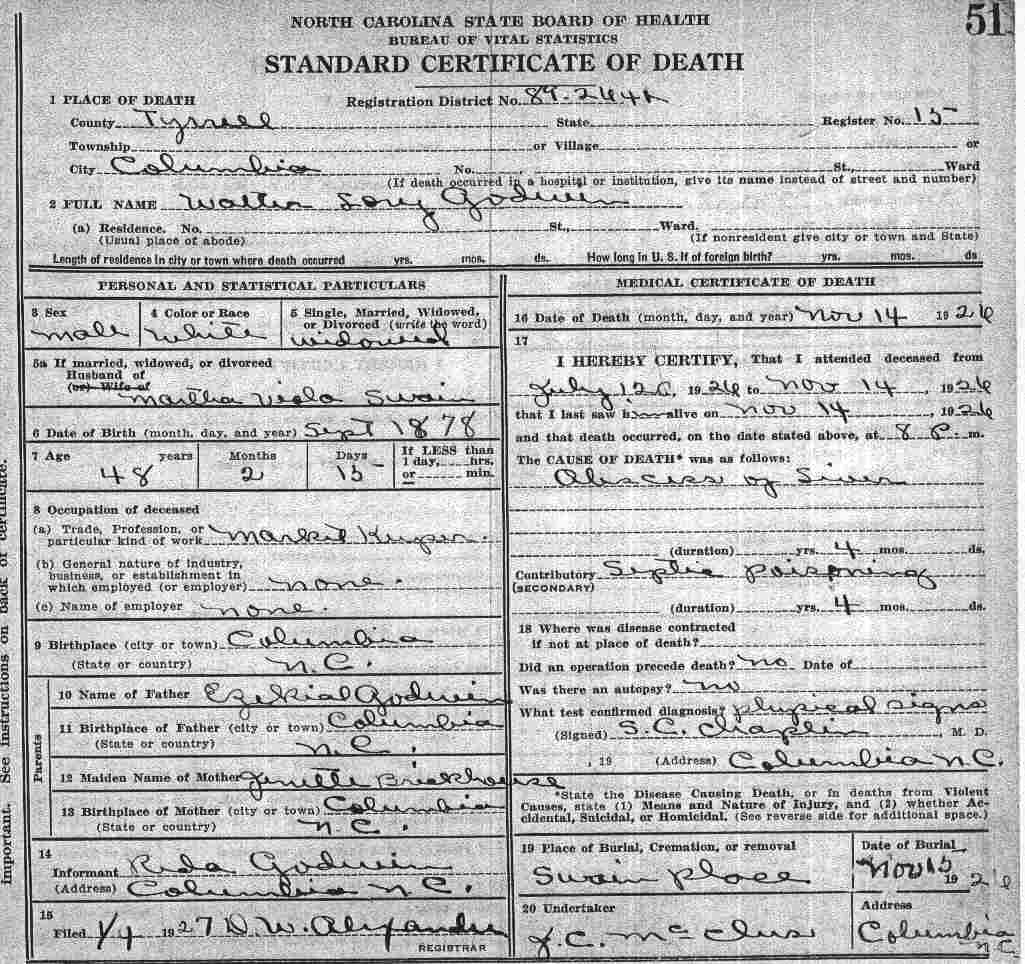 51
NORTH CAROLINA STATE BOARD OF HEALTH
BUREAU OF VITAL STATISTICS
STANDARD CERTIFICATE OF DEATH
1 PLACE OF DEATH Registration District No. 89-2641
County Tyrrell State Register No. 15
Township or Village or
City Columbia No. St., Ward
(If death occurred in a hospital or institution, give its name instead of street and number)
2 FULL NAME Walter Godwin
(a) Residence. No. St., Ward.
(Usual place of abode) (If nonresident give city or town and State)
Length of residence in city or town where death occurred yrs. mos. ds. How long in U. S. if of foreign birth? yrs. mos. ds
PERSONAL AND STATISTICAL PARTICULARS
3 Sex 4 Color or Race 5 Single, Married, Widowed,
or Divorced (write the word)
male white widowed
5a If married, widowed, or divorced
Husband of
(or) Wife of
Martha Viola Swain
6 Date of Birth (month, day, and year) Sept 1878
7 Age years Months Days If LESS than
1 day, hrs.
or min.
48 2 15
8 Occupation of deceased
(a) Trade, Profession, or
particular kind of work Market Keeper.
(b) General nature of industry,
business, or establishment in
which employed (or employer) none.
(c) Name of employer none.
9 Birthplace (city or town) Columbia
(State or country) N.C.
Parents
10 Name of Father Ezekial Godwin
11 Birthplace of Father (city or town) Columbia
(State or country) N.C.
12 Maiden Name of Mother Brickhouse
13 Birthplace of Mother (city or town) Columbia
(State or country) N.C.
14
Informant Godwin
(Address) Columbia N.C.
15
Filed 1/4 1927 D. W. Alexander
REGISTRAR
MEDICAL CERTIFICATE OF DEATH
16 Date of Death (month, day, and year) Nov 14 1926
17
I HEREBY CERTIFY, That I attended deceased from
July 1926 to Nov 14, 1926
that I last saw him alive on Nov 14, 1926
and that death occurred, on the date stated above, at 8 P. m.
The CAUSE OF DEATH* was as follows:
Abscess of Liver
(duration) yrs. 4 mos. ds.
Contributory Septic poisoning
(SECONDARY)
(duration) yrs. 4 mos. ds.
18 Where was disease contracted
if not at place of death?
Did an operation precede death? no Date of
Was there an autopsy? no
What test confirmed diagnosis? physical signs
(Signed) S.C. Chaplin, M. D.
, 19 (Address) Columbia N.C.
*State the Disease Causing Death, or in deaths from Violent
Causes, state (1) Means and Nature of Injury, and (2) whether Ac-
cidental, Suicidal, or Homicidal. (See reverse side for additional space.)
19 Place of Burial, Cremation, or removal Date of Burial
Swain place Nov 15 1926
20 Undertaker Address
Columbia
N.C.
Important. See instructions on back of certificate.